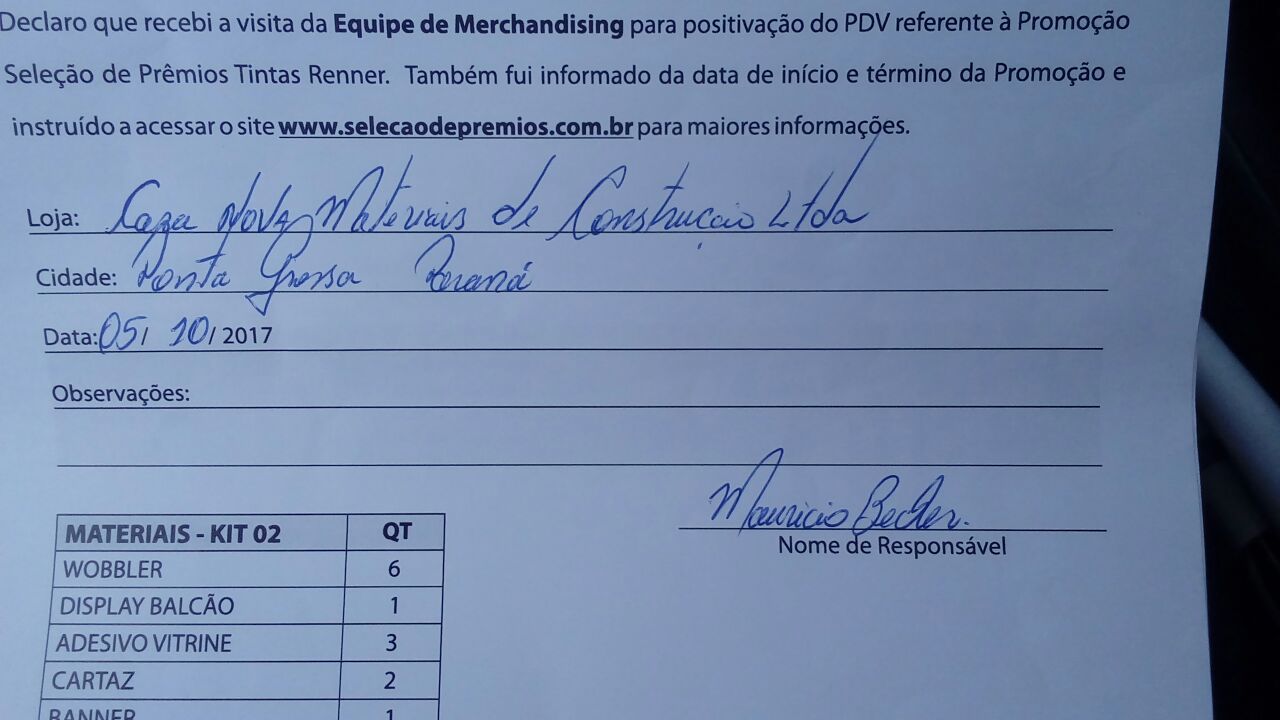 Declaro que recebi a visita da Equipe de Merchandising para positivação do PDV referente à Promoção
Seleção de Prêmios Tintas Renner. Também fui informado da data de início e término da Promoção e
instruído a acessar o site www.selecaodepremios.com.br para maiores informações.
Loja: Casa Nova Materiais de Construção Ltda
Cidade: Ponta Grossa Paraná
Data: 05/ 10/ 2017
Observações:
Mauricio Becker.
Nome de Responsável
MATERIAIS - KIT 02 QT
WOBBLER 6
DISPLAY BALCÃO 1
ADESIVO VITRINE 3
CARTAZ 2
BANNER 1